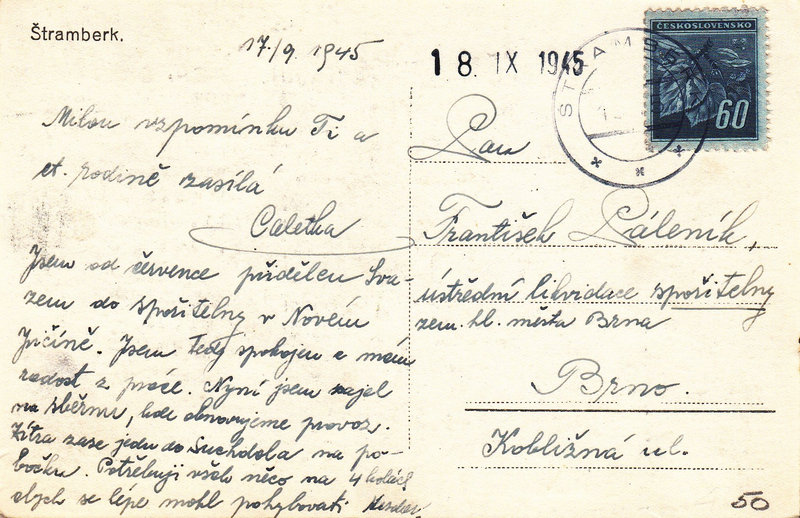 Štramberk.
17./9. 1945
18. IX 1945
ČESKOSLOVENSKO
60
Milou vzpomínku Ti a
ct. rodině zasílá
Caletka
Jsem od července přidělen Sva-
zem do spořitelny v Novém
Jičíně. Jsem tedy spokojen a mám
radost z práce. Nyní jsem zajel
na sběrnu, kde obnovujeme provoz.
Zítra zase jedu do Suchdola na po-
bočku. Potřebuji však něco na 4 kolách
abych se lépe mohl pohybovati
Pan
František Páleník,
ústřední likvidace spořitelny
zem. hl. města Brna
Brno.
Kobližná ul.
50